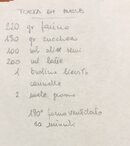 TORTA DI MELE
220 gr farina
150 gr zucchero
100 ml olio semi
200 ml latte
1 bustina lievito
cannella
2 mele
180° forno ventilato
minuti